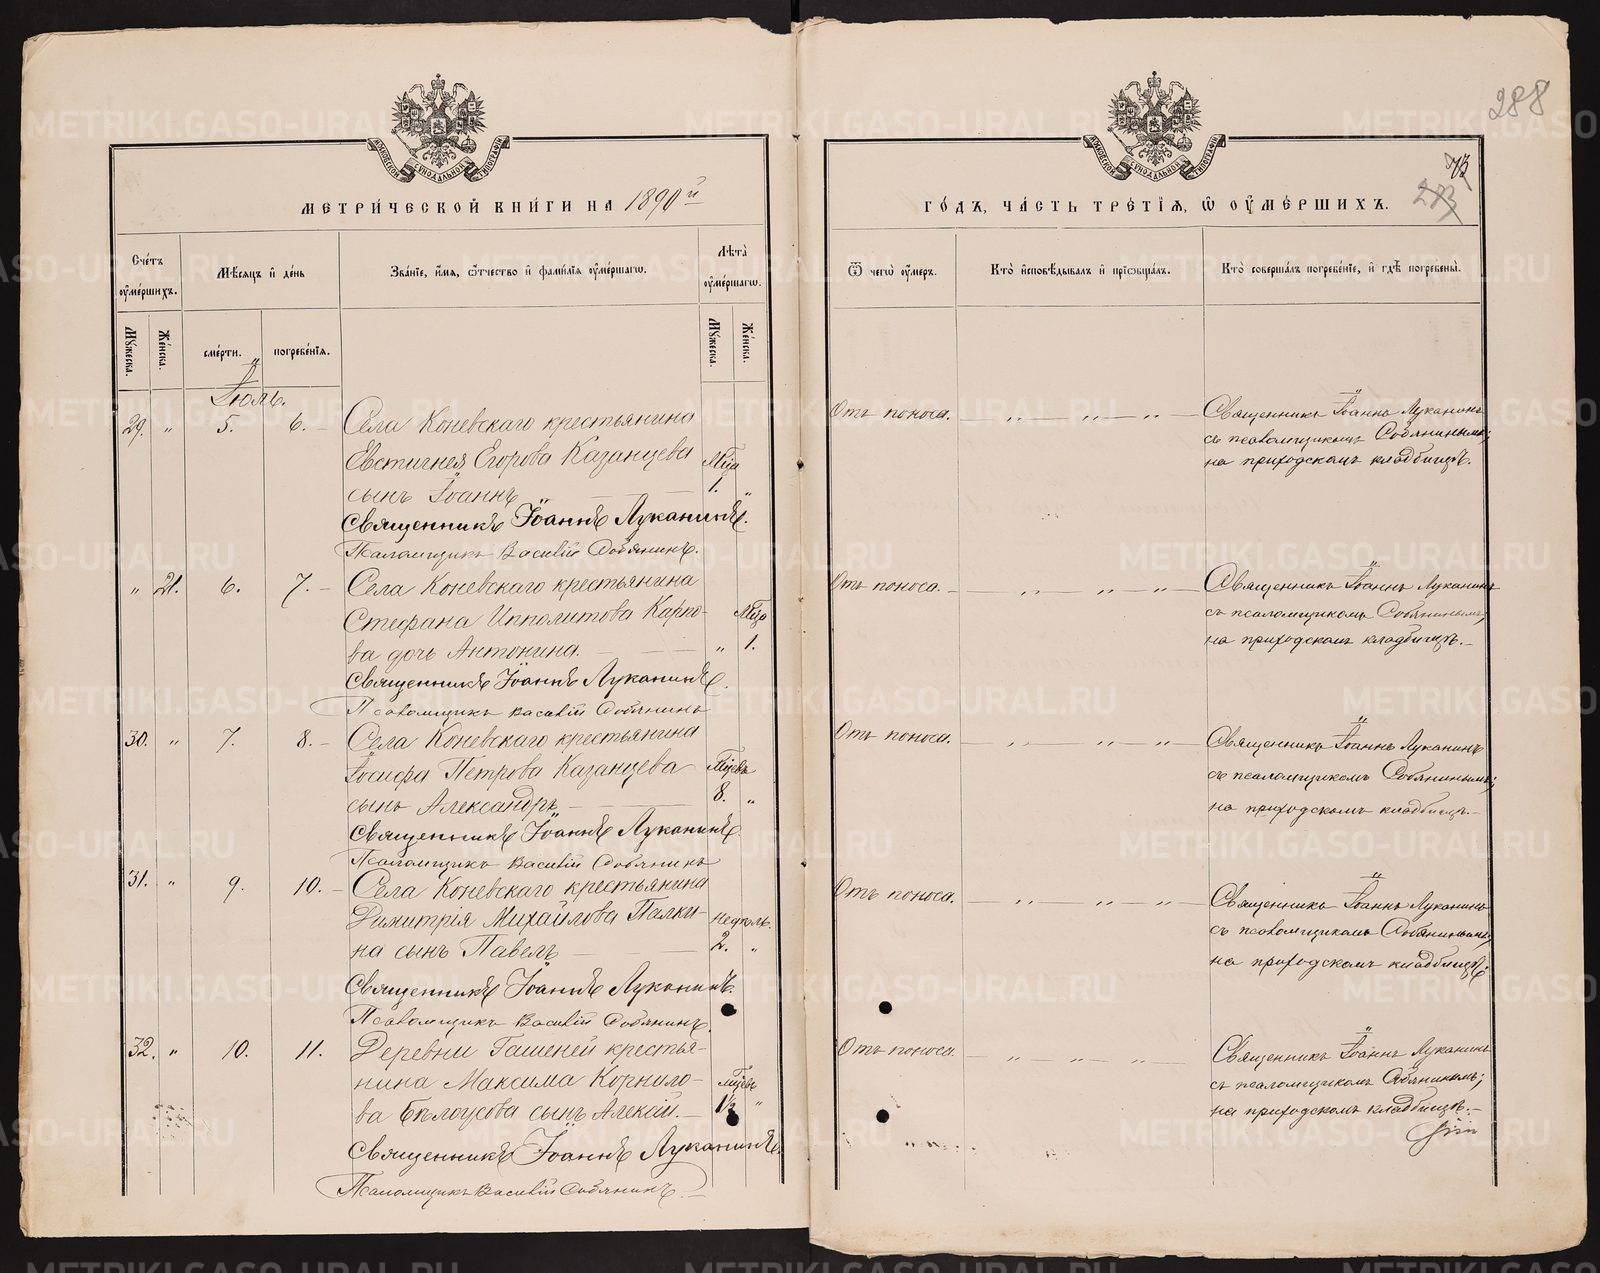 288
МОСКОВСКОЙ СѴНОДАЛЬНОЙ ТИПОГРАФІИ
МЕТРИ́ЧЕСКОЙ КНИ́ГИ НА 1890й
Сче́тъ ᲂу҆ме́ршихъ.
Мѣ́сяцъ и҆ де́нь
Зва́нїе, и҆́мѧ, ѻ҆́тчество и҆ фами́лїѧ ᲂу҆ме́ршагѡ.
Лѣта̀ ᲂу҆ме́ршагѡ.
Мꙋ́жеска.
Же́нска.
сме́рти.
погребе́нїѧ.
Мꙋ́жеска.
Же́нска.
Іюль.
29. „ 5. 6. – Села Коневскаго крестьянина
Евстигнея Егорова Казанцева Мца
сынъ Іоаннъ — — 1. „
Священникъ Іоаннъ Луканинъ.
Псаломщикъ Василій Собянинъ.
„ 21. 6. 7. – Села Коневскаго крестьянина
Стефана Ипполитова Карпо-
ва дочь Антонина. — — „ 1.
Священникъ Іоаннъ Луканинъ.
Псаломщикъ Василій Собянинъ
30. „ 7. 8. – Села Коневскаго крестьянина
Іосифа Петрова Казанцева Мцевъ
сынъ Александръ — — 8. „
Священникъ Іоаннъ Луканинъ
Псаломщикъ Василій Собянинъ
31. „ 9. 10. – Села Коневскаго крестьянина
Димитрія Михайлова Палки- недѣль.
на сынъ Павелъ — — 2. „
Священникъ Іоаннъ Луканинъ.
Псаломщикъ Василій Собянинъ.
32. „ 10. 11. Деревни Гашеней крестья-
нина Максима Корнило- Мцевъ
ва Бѣлоусова сынъ Алексій. – „
Священникъ Іоаннъ Луканинъ.
Псаломщикъ Василій Собянинъ. –
МОСКОВСКОЙ СѴНОДАЛЬНОЙ ТИПОГРАФІИ
ГО́ДЪ, ЧА́СТЬ ТРЕ́ТЇѦ, Ѡ҆ ᲂУ҆МЕ́РШИХЪ.
Ѿ чегѡ̀ ᲂу҆́меръ.
Кто̀ и҆сповѣ́дывалъ и҆ прїѡбща́лъ.
Кто̀ соверша́лъ погребе́нїе, и҆ гдѣ̀ погребены̀.
Отъ поноса. „ — „ — „ — Священникъ Іоаннъ Луканинъ
съ псаломщикомъ Собянинымъ;
на приходскомъ кладбищѣ.
Отъ поноса. – „ — „ — „ — Священникъ Іоаннъ Луканинъ
съ псаломщикомъ Собянинымъ;
на приходскомъ кладбищѣ. –
Отъ поноса. — „ — „ — „ — Священникъ Іоаннъ Луканинъ
съ псаломщикомъ Собянинымъ;
на приходскомъ кладбищѣ. –
Отъ поноса. — „ — „ — „ — Священникъ Іоаннъ Луканинъ
съ псаломщикомъ Собянинымъ;
на приходскомъ кладбищѣ;
Отъ поноса. – „ — „ — „ — Священникъ Іоаннъ Луканинъ
съ псаломщикомъ Собянинымъ;
на приходскомъ кладбищѣ. –
METRIKI.GASO-URAL.RU